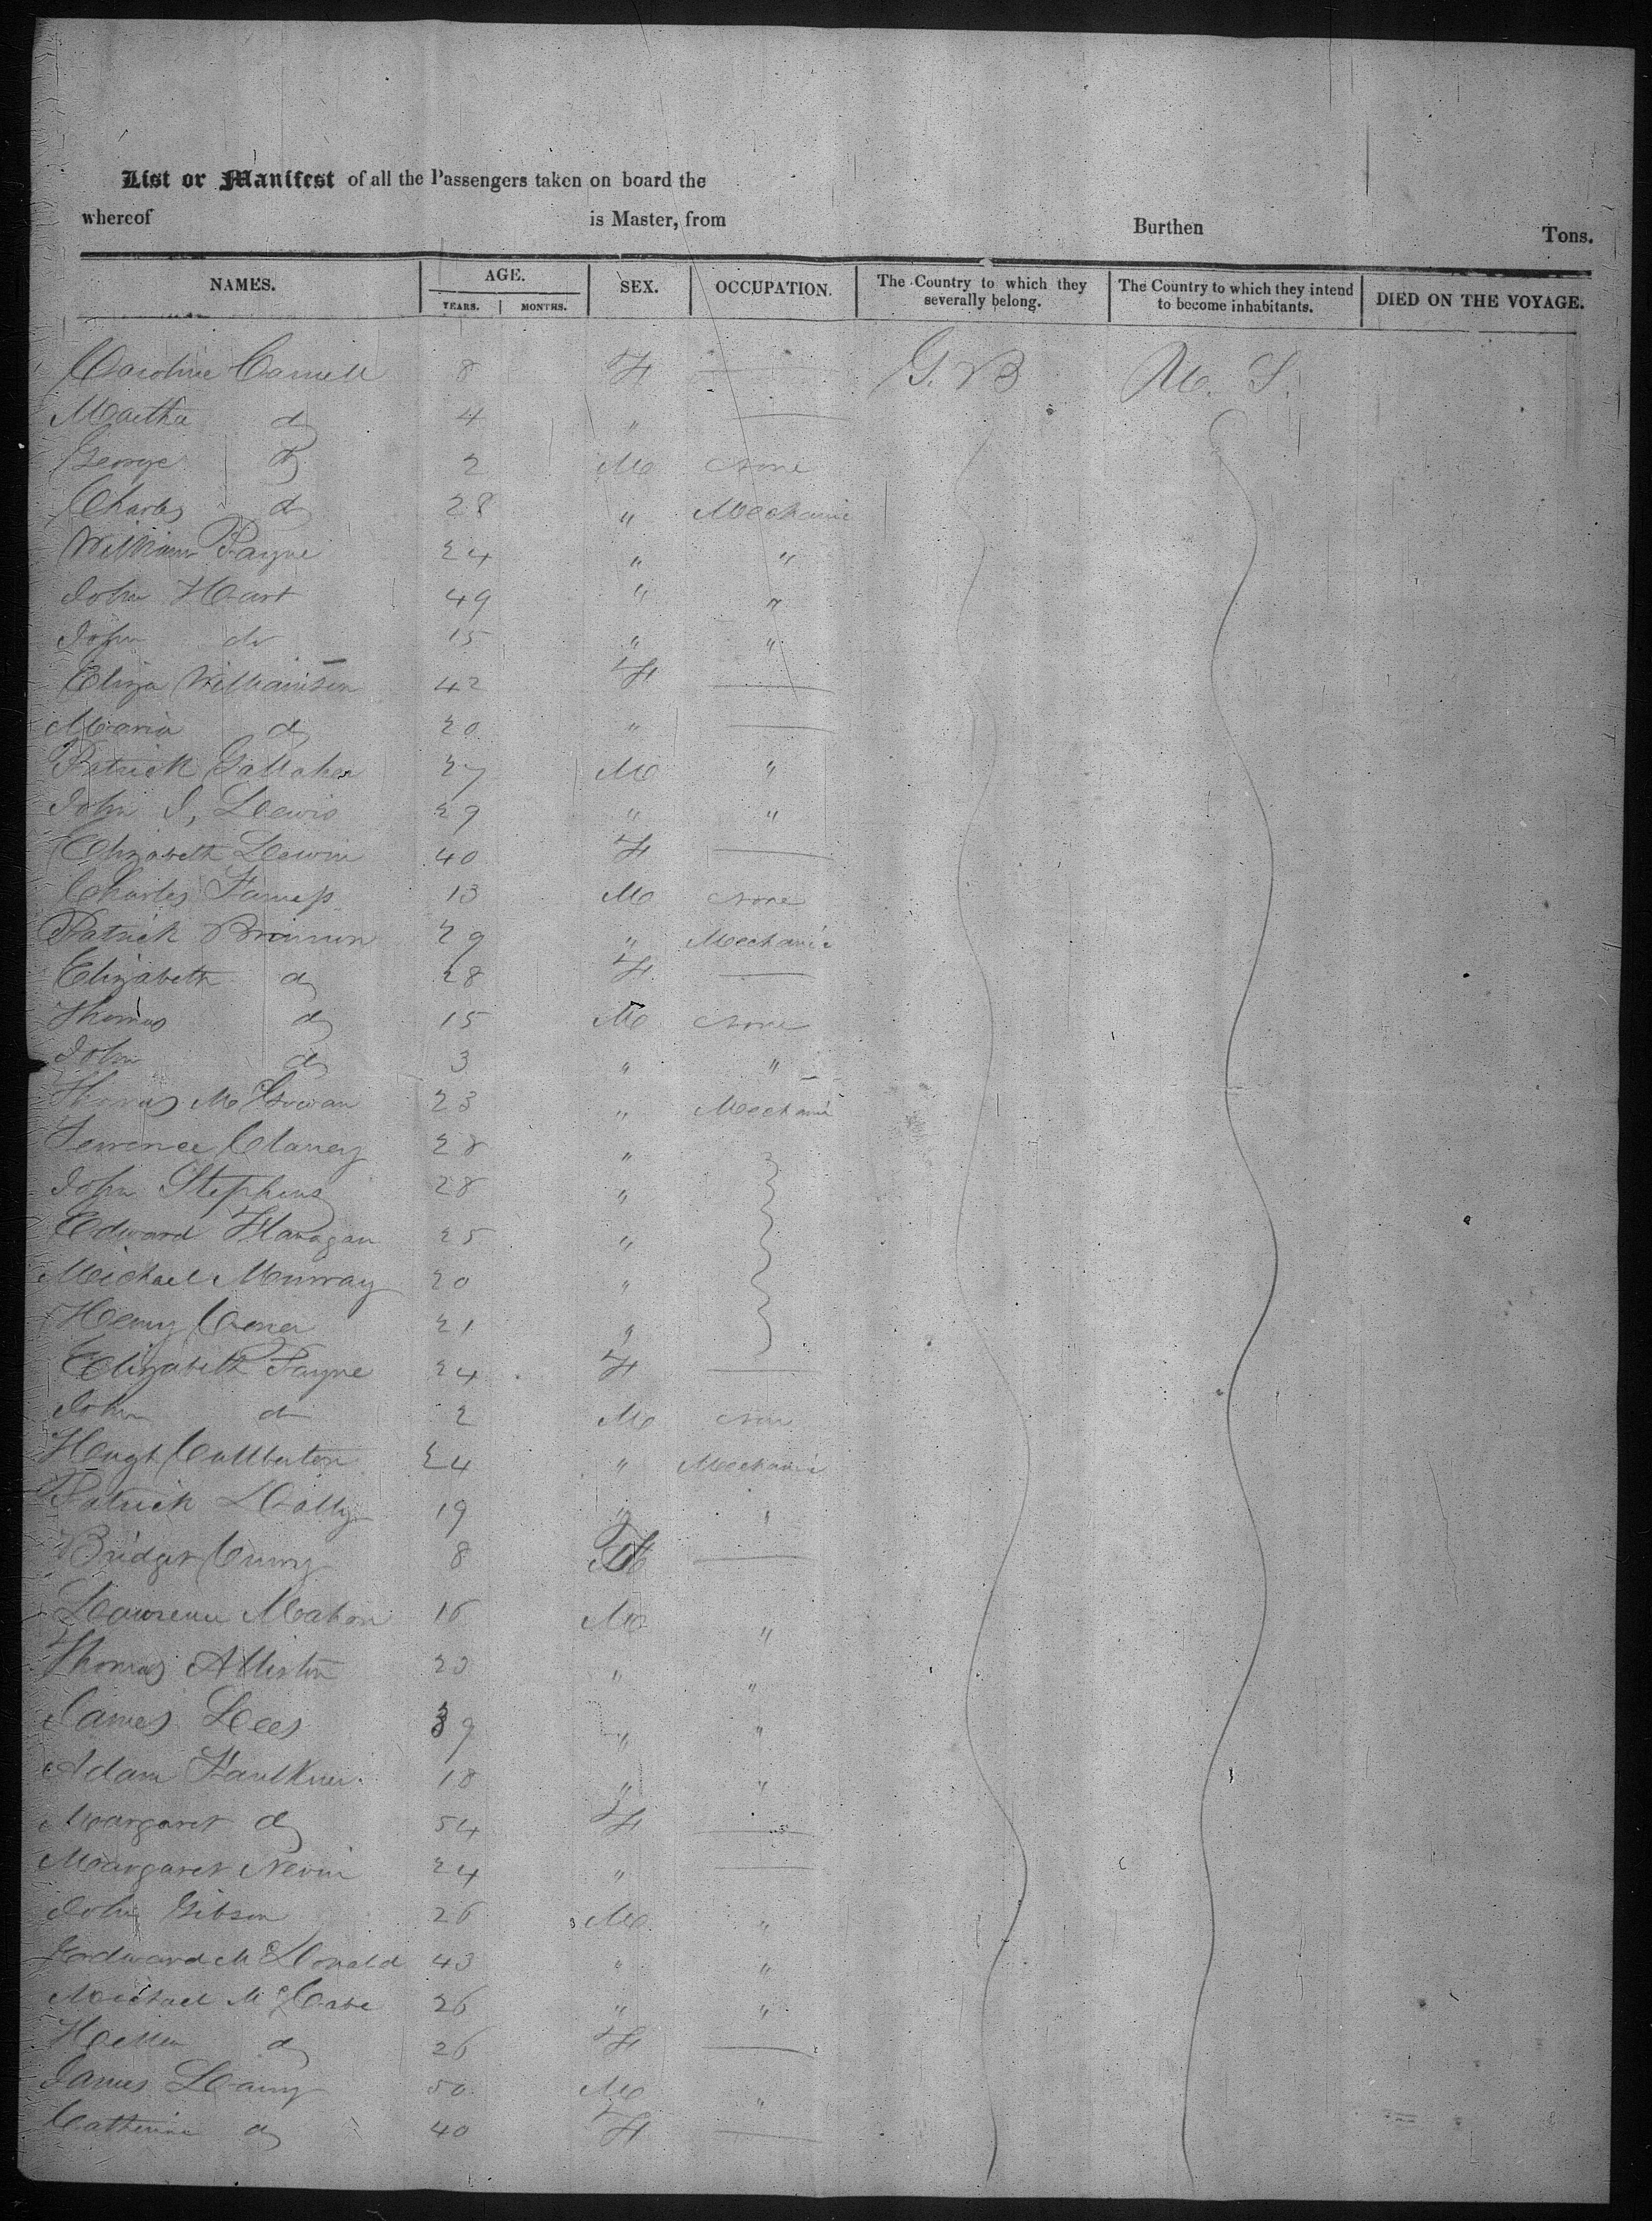 List or Manifest of all the Passengers taken on board the
whereof is Master, from Burthen Tons.
NAMES. AGE. SEX. OCCUPATION. The Country to which they severally belong. The Country to which they intend to become inhabitants. DIED ON THE VOYAGE.
YEARS. MONTHS.
Caroline 8 F — G. B U. S.
Martha do 4 " —
George do 2 M None
Charles do 28 " Mechanic
William Payne 24 " "
John Hart 49 " "
John do 15 " "
Eliza Williamson 42 F —
Maria do 20 " —
Patrick Gallaher 27 M "
John J, Lewis 29 " "
Elizabeth 40 F —
Charles 13 M None
Patrick 29 " Mechanic
Elizabeth do 28 F —
Thomas do 15 M None
John do 3 " "
Thomas McGowan 23 " Mechanic
Terrence Clancy 28 "
John Stephens 28 "
Edward Flanagan 25 "
Michael Murray 20 "
Henry 21 "
Elizabeth Payne 24 F —
John do 2 M None
Hugh 24 " Mechanic
Patrick 19 " "
Bridget 8 F —
Lawrence Mahon 16 M "
Thomas 23 " "
James Lees 39 " "
Adam Faulkner 18 " "
Margaret do 54 F —
Margaret Nevin 24 " —
John Gibson 26 M "
Edward McDonald 43 " "
Michael McCabe 26 " "
Hellen do 26 F —
James 50 M "
Catherine do 40 F —